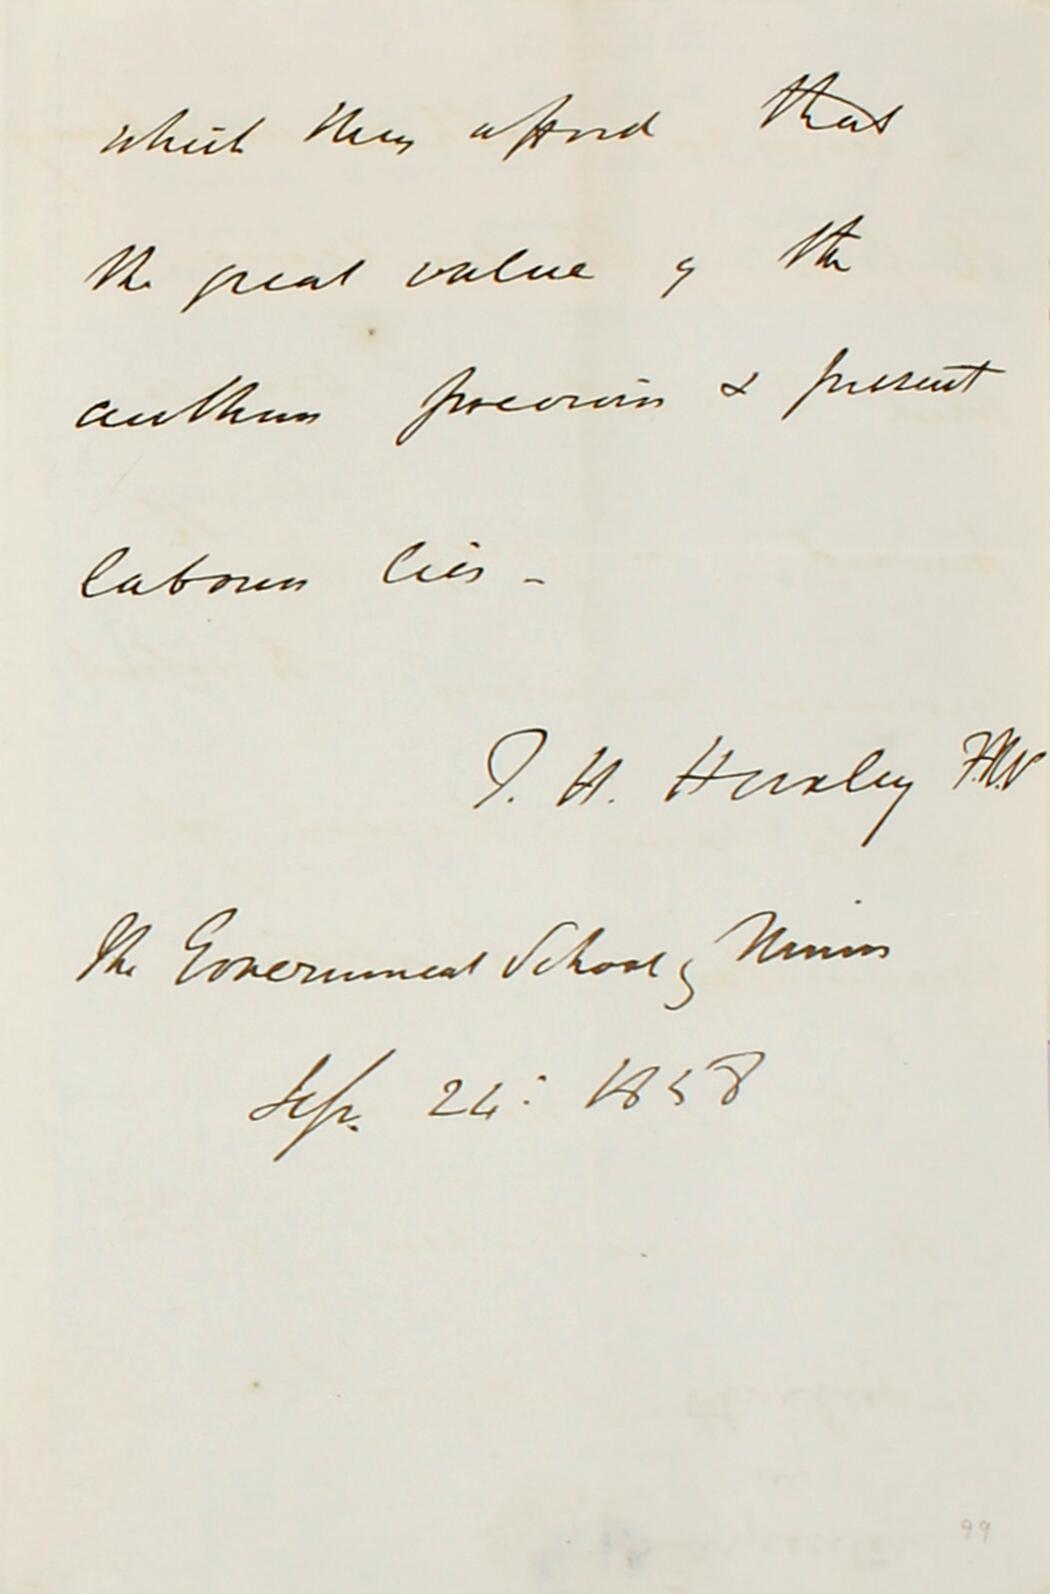 which they afford that
the great value of the
authors previous & present
labours lies –
T. H. Huxley F.R.S
The Government School of Mines
Sep. 24: 1858
99